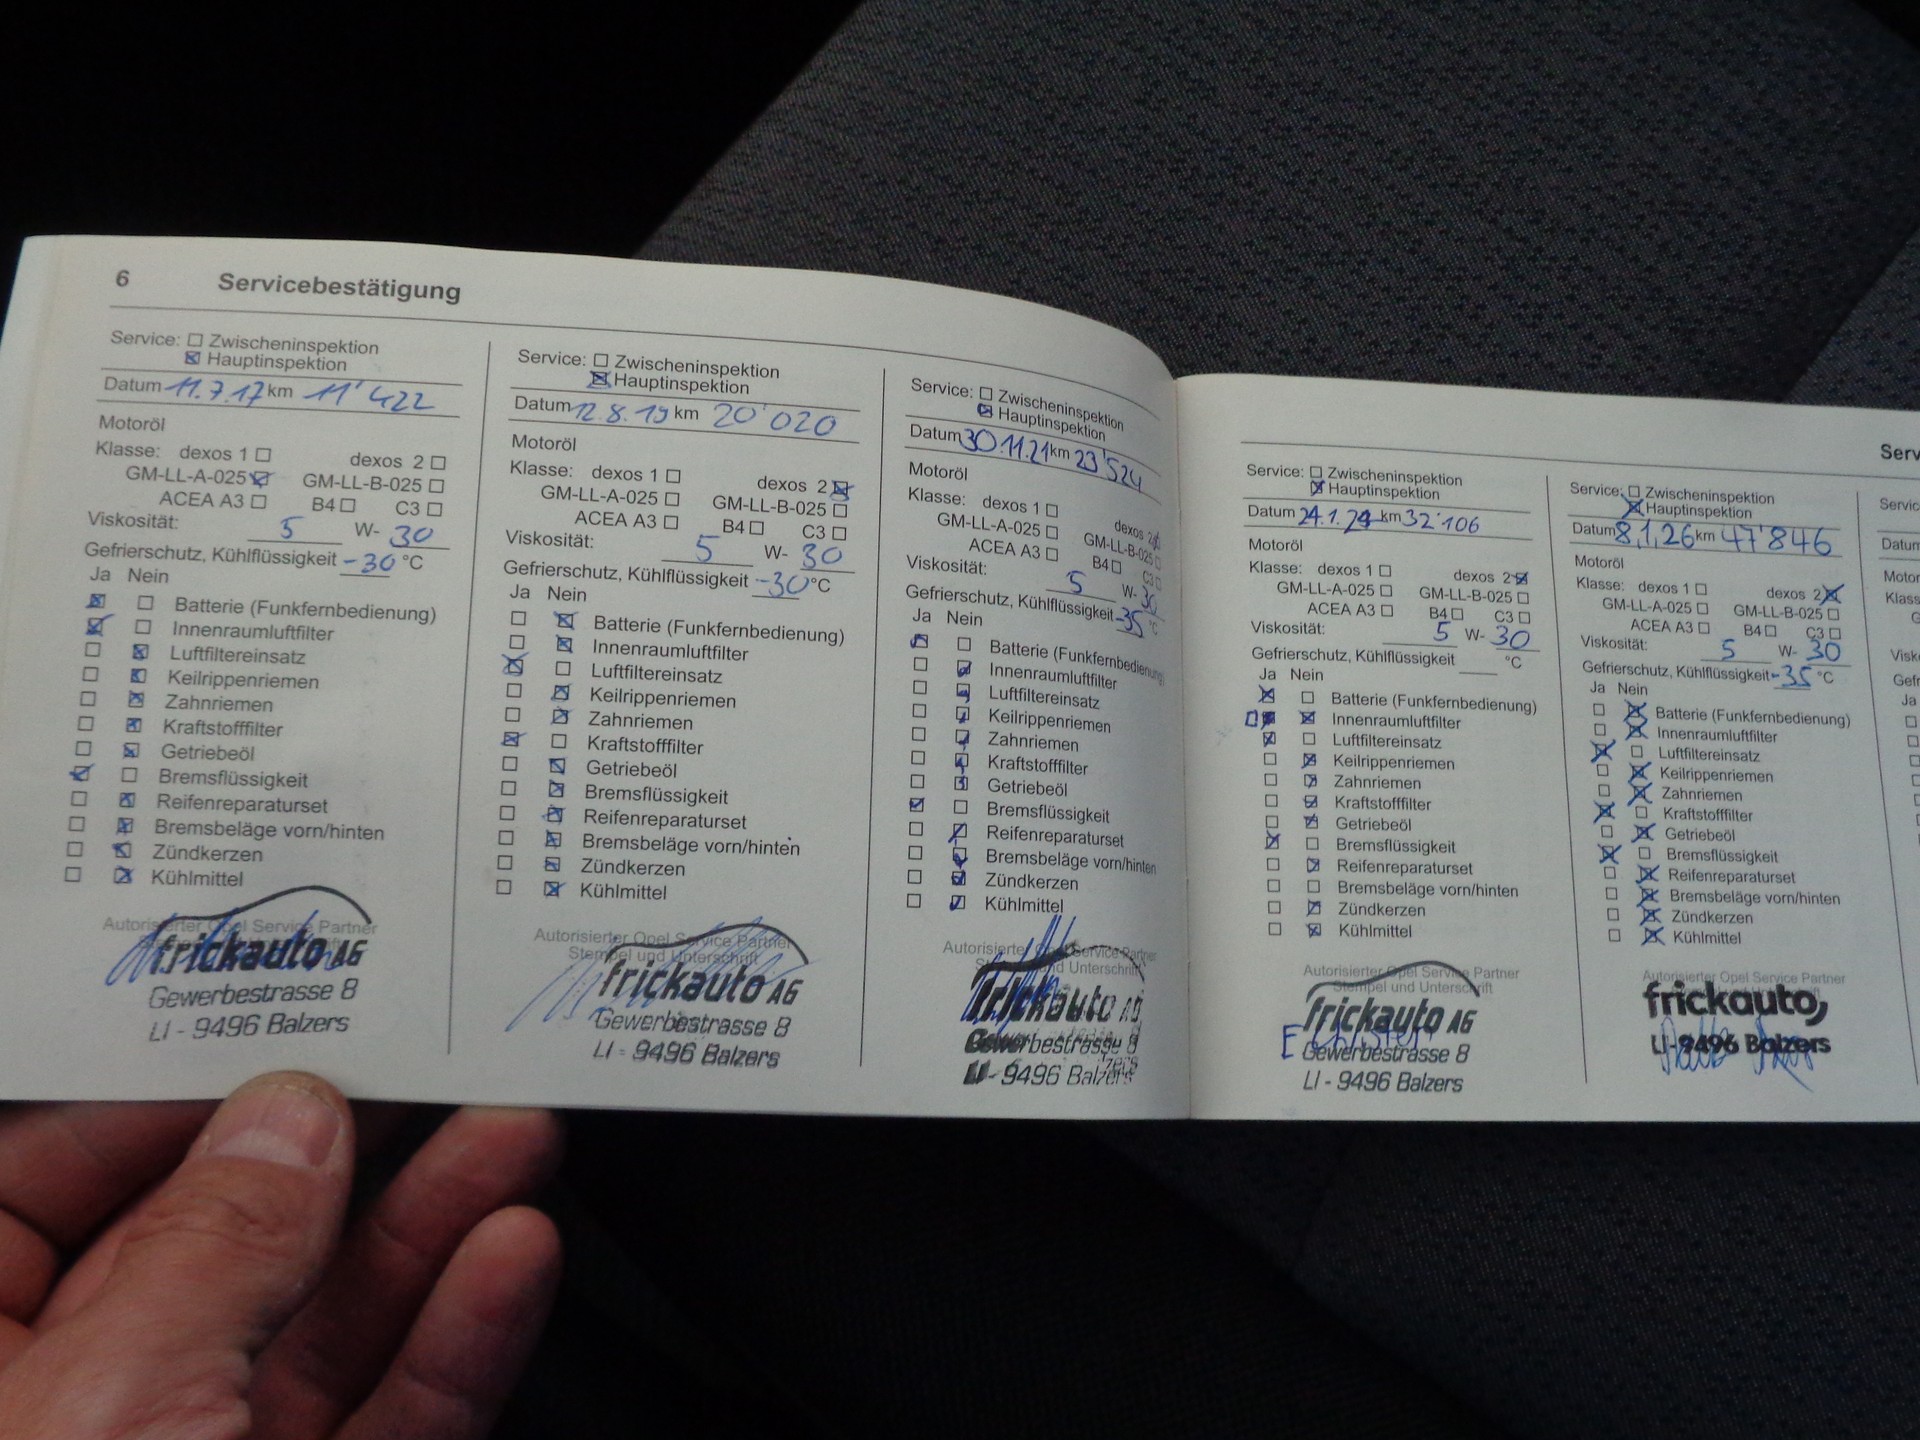 6 Servicebestätigung
Service: ☐ Zwischeninspektion
☒ Hauptinspektion
Datum 11.7.17 km 11'422
Motoröl
Klasse: dexos 1 ☐ dexos 2 ☐
GM-LL-A-025 ☒ GM-LL-B-025 ☐
ACEA A3 ☐ B4 ☐ C3 ☐
Viskosität: 5 W- 30
Gefrierschutz, Kühlflüssigkeit -30 °C
Ja Nein
☒ ☐ Batterie (Funkfernbedienung)
☒ ☐ Innenraumluftfilter
☐ ☒ Luftfiltereinsatz
☐ ☒ Keilrippenriemen
☐ ☒ Zahnriemen
☐ ☒ Kraftstofffilter
☐ ☒ Getriebeöl
☒ ☐ Bremsflüssigkeit
☐ ☒ Reifenreparaturset
☐ ☒ Bremsbeläge vorn/hinten
☐ ☒ Zündkerzen
☐ ☒ Kühlmittel
Autorisierter Opel Service Partner
frickauto AG
Gewerbestrasse 8
LI - 9496 Balzers
Service: ☐ Zwischeninspektion
☒ Hauptinspektion
Datum 12.8.19 km 20'020
Motoröl
Klasse: dexos 1 ☐ dexos 2 ☒
GM-LL-A-025 ☐ GM-LL-B-025 ☐
ACEA A3 ☐ B4 ☐ C3 ☐
Viskosität: 5 W- 30
Gefrierschutz, Kühlflüssigkeit -30 °C
Ja Nein
☐ ☒ Batterie (Funkfernbedienung)
☐ ☒ Innenraumluftfilter
☒ ☐ Luftfiltereinsatz
☐ ☒ Keilrippenriemen
☐ ☒ Zahnriemen
☒ ☐ Kraftstofffilter
☐ ☒ Getriebeöl
☐ ☒ Bremsflüssigkeit
☐ ☒ Reifenreparaturset
☐ ☒ Bremsbeläge vorn/hinten
☐ ☒ Zündkerzen
☐ ☒ Kühlmittel
Autorisierter Opel Service Partner
Stempel und Unterschrift
frickauto AG
Gewerbestrasse 8
LI - 9496 Balzers
Service: ☐ Zwischeninspektion
☒ Hauptinspektion
Datum 30.11.21 km 23'524
Motoröl
Klasse: dexos 1 ☐ dexos 2 ☒
GM-LL-A-025 ☐ GM-LL-B-025 ☐
ACEA A3 ☐ B4 ☐ C3 ☐
Viskosität: 5 W- 30
Gefrierschutz, Kühlflüssigkeit -35 °C
Ja Nein
☒ ☐ Batterie (Funkfernbedienung)
☐ ☒ Innenraumluftfilter
☐ ☒ Luftfiltereinsatz
☐ ☒ Keilrippenriemen
☐ ☒ Zahnriemen
☐ ☒ Kraftstofffilter
☐ ☒ Getriebeöl
☒ ☐ Bremsflüssigkeit
☐ ☒ Reifenreparaturset
☐ ☒ Bremsbeläge vorn/hinten
☐ ☒ Zündkerzen
☐ ☒ Kühlmittel
Autorisierter Opel Service Partner
und Unterschrift
frickauto AG
Gewerbestrasse 8
LI - 9496 Balzers
Service: ☐ Zwischeninspektion
☒ Hauptinspektion
Datum 24.1.24 km 32'106
Motoröl
Klasse: dexos 1 ☐ dexos 2 ☒
GM-LL-A-025 ☐ GM-LL-B-025 ☐
ACEA A3 ☐ B4 ☐ C3 ☐
Viskosität: 5 W- 30
Gefrierschutz, Kühlflüssigkeit °C
Ja Nein
☒ ☐ Batterie (Funkfernbedienung)
☐ ☒ ☒ Innenraumluftfilter
☒ ☐ Luftfiltereinsatz
☐ ☒ Keilrippenriemen
☐ ☒ Zahnriemen
☐ ☒ Kraftstofffilter
☐ ☒ Getriebeöl
☒ ☐ Bremsflüssigkeit
☐ ☒ Reifenreparaturset
☐ ☐ Bremsbeläge vorn/hinten
☐ ☒ Zündkerzen
☐ ☒ Kühlmittel
Autorisierter Opel Service Partner
Stempel und Unterschrift
frickauto AG
Gewerbestrasse 8
LI - 9496 Balzers
Serv
Service: ☐ Zwischeninspektion
☒ Hauptinspektion
Datum 8.1.26 km 47'846
Motoröl
Klasse: dexos 1 ☐ dexos 2 ☒
GM-LL-A-025 ☐ GM-LL-B-025 ☐
ACEA A3 ☐ B4 ☐ C3 ☐
Viskosität: 5 W- 30
Gefrierschutz, Kühlflüssigkeit -35 °C
Ja Nein
☐ ☒ Batterie (Funkfernbedienung)
☐ ☒ Innenraumluftfilter
☒ ☐ Luftfiltereinsatz
☐ ☒ Keilrippenriemen
☐ ☒ Zahnriemen
☒ ☐ Kraftstofffilter
☐ ☒ Getriebeöl
☒ ☐ Bremsflüssigkeit
☐ ☒ Reifenreparaturset
☐ ☒ Bremsbeläge vorn/hinten
☐ ☒ Zündkerzen
☐ ☒ Kühlmittel
Autorisierter Opel Service Partner
frickauto
LI-9496 Balzers
Servic
Datum
Motor
Klass
Visk
Gefr
Ja